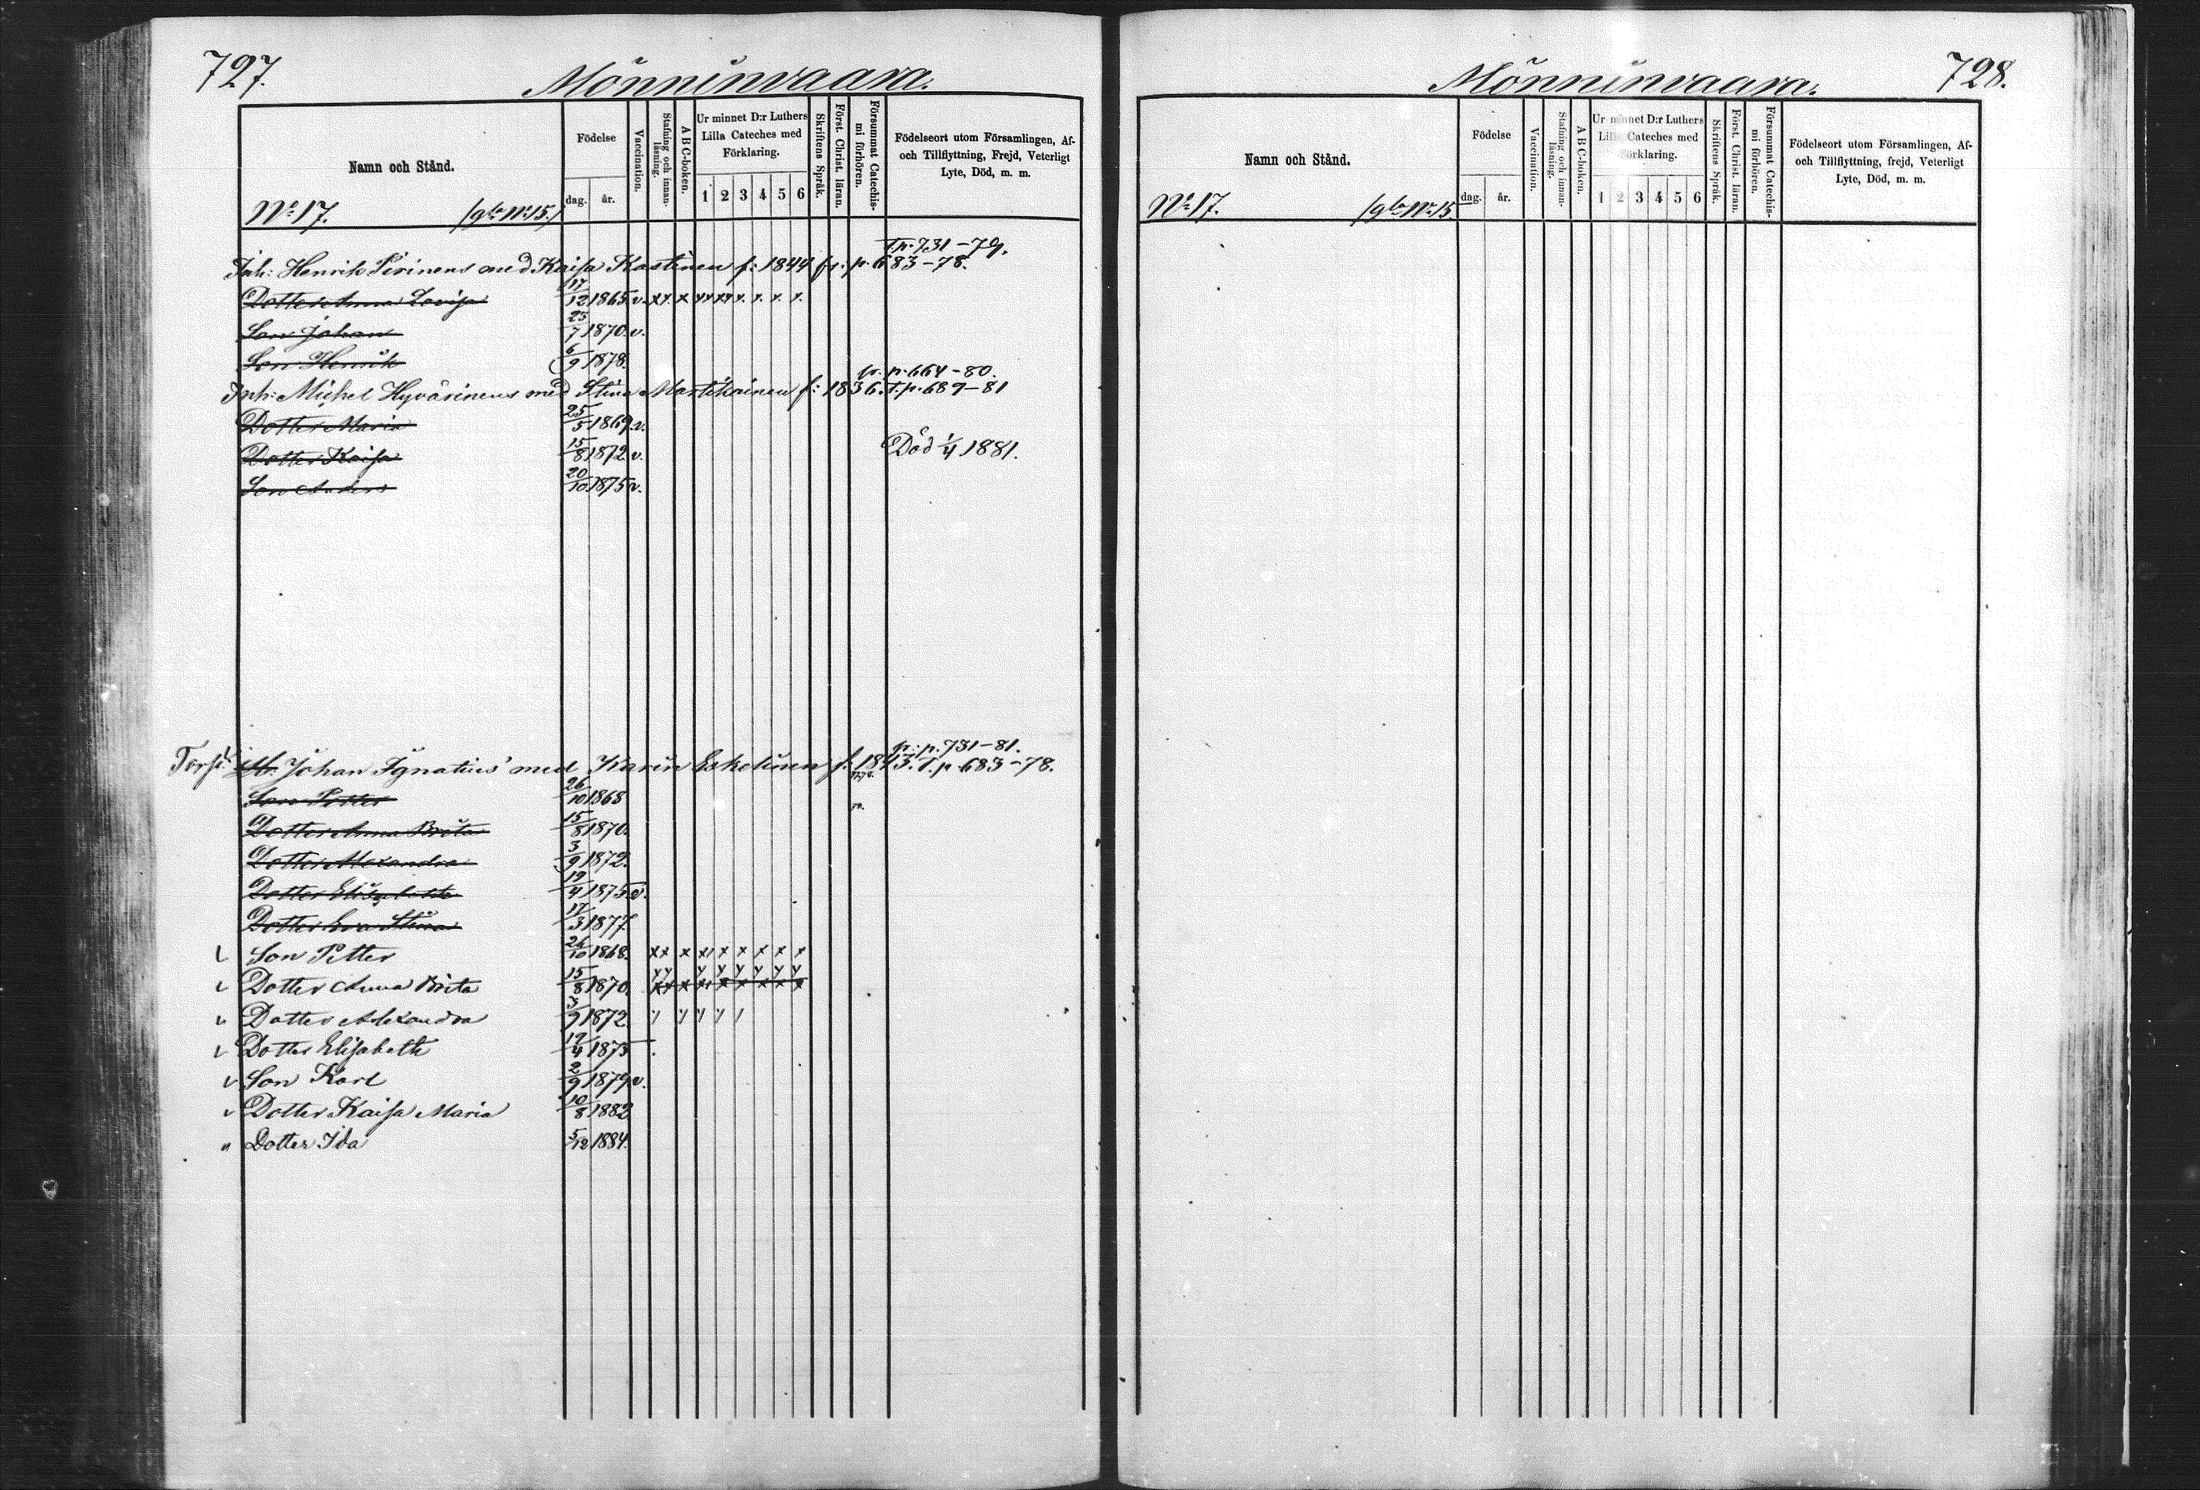 727.
Mönninvaara.
Namn och Stånd.
Födelse
dag.
år.
Vaccination.
Stafning och innan-läsning.
A B C-boken.
Ur minnet D:r Luthers Lilla Cateches med Förklaring.
1 2 3 4 5 6
Skriftens Språk.
Först. Christ. läran.
Försummat Catechis-mi förhören.
Födelseort utom Församlingen, Af-
och Tillflyttning, Frejd, Veterligt
Lyte, Död, m. m.
No 17. /gla No 15./
T.p. 731-79.
Inh: Henrik Pirinens med Kaisa Kastinen f: 1844 fr. p. 683-78.
Dotter Anna Lovisa 17/12 1865 v. x x x x x x x x x
Son Johan 25/7 1870 v.
Son Henrik 6/9 1878.
fr. p. 664-80.
Inh: Michel Hyvärinens med Stina Martikainen f: 1836. T.p. 689-81
Dotter Maria 25/5 1869 v.
Dotter Kaisa 15/8 1872 v. Död 1/4 1881.
Son Anders 20/10 1875 v.
fr: p. 731-81.
Torp. Johan Ignatius' med Karin Eskelinen f. 1843. T.p 683-78.
Son Petter 26/10 1868
Dotter Anna Brita 15/8 1870.
Dotter Alexandra 3/9 1872.
Dotter Elisabeth 19/4 1875 v.
Dotter Eva Stina 17/3 1877
Son Petter 26/10 1868. x x x x x x x x x
Dotter Anna Brita 15/8 1870. x x x x x x x x x
Dotter Alexandra 3/9 1872
Dotter Elisabeth 19/4 1875
Son Karl 2/9 1879 v.
Dotter Kaisa Maria 10/8 1882
" Dotter Ida 5/12 1884.
Mönninvaara.
728.
Namn och Stånd.
Födelse
dag.
år.
Vaccination.
Stafning och innan-läsning.
A B C-boken.
Ur minnet D:r Luthers Lilla Cateches med Förklaring.
1 2 3 4 5 6
Skriftens Språk.
Först. Christ. läran.
Försummat Catechis-mi förhören.
Födelseort utom Församlingen, Af-
och Tillflyttning, frejd, Veterligt
Lyte, Död, m. m.
No 17. /gla No 15